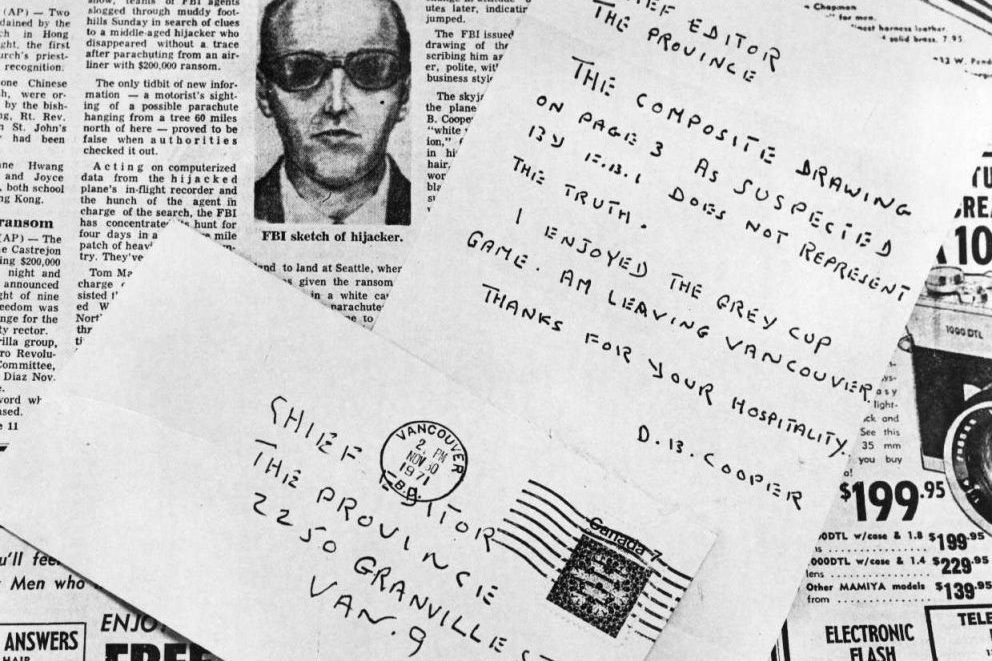 (AP) — Two
dained by the
ch in Hong
ght, the first
urch's priest-
recognition.
one Chinese
h, were or-
by the bish-
ng, Rt. Rev.
St. John's
had been
ane Hwang
and Joyce
, both school
ng Kong.
ransom
(AP) — The
e Castrejon
ing $200,000
night and
announced
ght of nine
eedom was
nge for the
ty rector.
rilla group,
ro Revolu-
Committee,
Diaz Nov.
word wh
ased.
e 11
snow, teams of FBI agents
slogged through muddy foot-
hills Sunday in search of clues
to a middle-aged hijacker who
disappeared without a trace
after parachuting from an air-
liner with $200,000 ransom.
The only tidbit of new infor-
mation — a motorist's sight-
ing of a possible parachute
hanging from a tree 60 miles
north of here — proved to be
false when authorities
checked it out.
Acting on computerized
data from the hijacked
plane's in-flight recorder and
the hunch of the agent in
charge of the search, the FBI
has concentrated its hunt for
four days in a mile
patch of heav
try. They've
Tom Ma
charge
sisted t
ed W
Nort
thr
ti
FBI sketch of hijacker.
and to land at Seattle, wher
s given the ransom
in a white ca
parachute
e to
utes later, indicatir
jumped.
The FBI issued
drawing of the
scribing him as
er, polite, wit
business style
The skyja
the plane
B. Cooper
"white
ion,"
in hi
hair,
wor
bla
CHIEF EDITOR
THE PROVINCE
THE COMPOSITE DRAWING
ON PAGE 3 AS SUSPECTED
BY F.B.I DOES NOT REPRESENT
THE TRUTH.
I ENJOYED THE GREY CUP
GAME. AM LEAVING VANCOUVER.
THANKS FOR YOUR HOSPITALITY.
D.B. COOPER
CHIEF EDITOR
THE PROVINCE
2250 GRANVILLE ST
VAN. 9
VANCOUVER
2 PM
NOV 30
1971
B.C.
Canada 7
Chapman
for men.
nest harness leather.
solid brass. 7.95
TU
REA
10
1000 DTL
asy
light-
ck and
See this
35 mm
you buy
o!
$199.95
00DTL w/case & 1.8 $199.95
ns
000DTL w/case & 1.4 $229.95
lens
Other MAMIYA models $139.95
from
ELECTRONIC
FLASH
TELE
u'll fee
Men who
ANSWERS
HAIR
ENJO
FREE